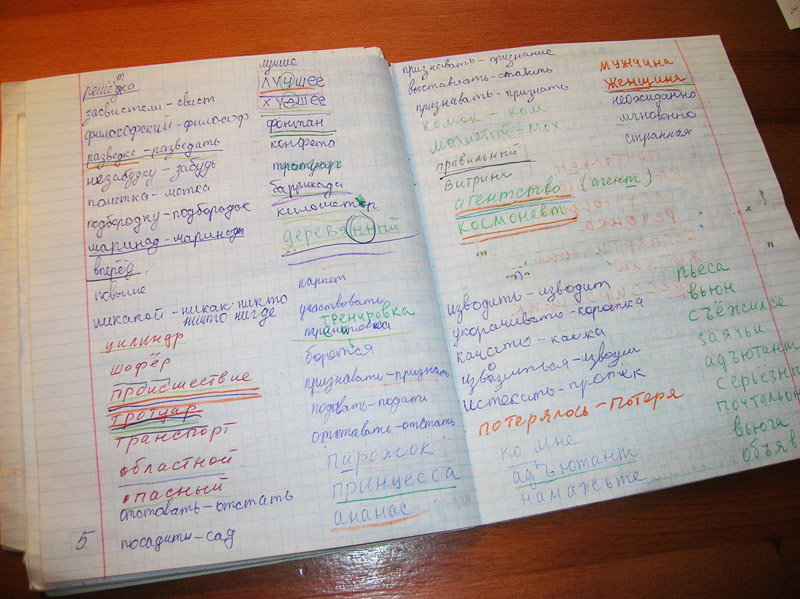 решётка
засвистели - свист
философский - философ
разведке - разведать
незабудку - забудь
пометка - метка
подбородку - подбородок
маринад - маринады
вперёд
повыше
никакой - никак никто
ничто нигде
цилиндр
шофёр
происшествие
тротуар
транспорт
областной
опасный
отставать - отстать
посадить - сад
5
лучше
лучшее
худшее
фонтан
конфета
тротуар
баррикада
километр
деревянный
паркет
участвовать
тренировка
бороться
признавать - признать
подавать - подати
отставать - отстать
пирожок
принцесса
ананас
признавать - признание
выставлять - ставить
признавать - признать
комок - ком
мохнатый - мох
правильный
витрина
агентство (агент)
космонавт
изводить - изводит
укорачивать - коротка
извозиться - извоз
истекать - протёк
потерялось - потеря
ко мне
адъютант
намажьте
мужчина
женщина
неожиданно
мгновенно
странная
пьеса
вьюн
съёжился
заячьи
адъютант
серьёзн
почтальон
вьюга
объяв